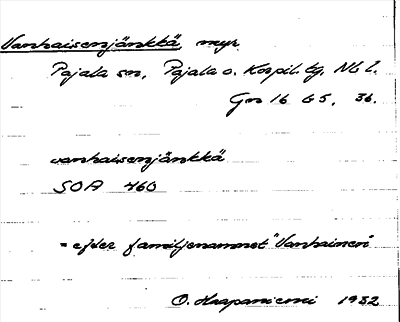 Vanhaisenjänkkä myr
Pajala sn, Pajala o. Korpil. tg. Nb l.
Gn 16 G5, 36.
vanhaisenjänkkä
SOA 460
= efter familjenamnet "Vanhainen"
O. Haapaniemi 1932